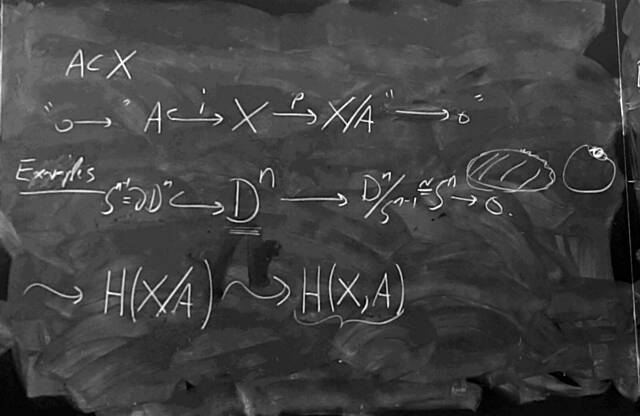 A ⊂ X
"0 → " A ↪ⁱ X →ᵖ X/A " → 0"
Examples Sⁿ⁻¹ = ∂Dⁿ ↪ Dⁿ → Dⁿ/Sⁿ⁻¹ ≅ Sⁿ → 0.
⇝ H(X/A) ⇝ H(X,A)